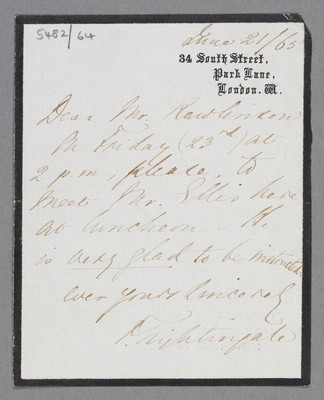 5482/64
June 21/65
34 South Street,
Park Lane,
London. W.
Dear Mr. Rawlinson
On Friday (23rd) at
2 p.m., please, to
meet Mr. Ellis here
at luncheon - He
is very glad to be instructed
ever yours sincerely
F. Nightingale